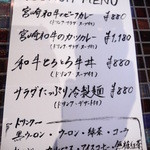 MENU
宮崎和牛ビーフカレー ¥880
(ドリンク・スープ付)
宮崎和牛のカツカレー ¥1,180
(ドリンク・スープ付)
和牛とろろ牛丼 ¥880
(ドリンク・スープ付)
サラダたっぷり冷製麺 ¥880
(ドリンク・デザート付)
ドリンク
黒ウーロン・ウーロン・緑茶・コーラ